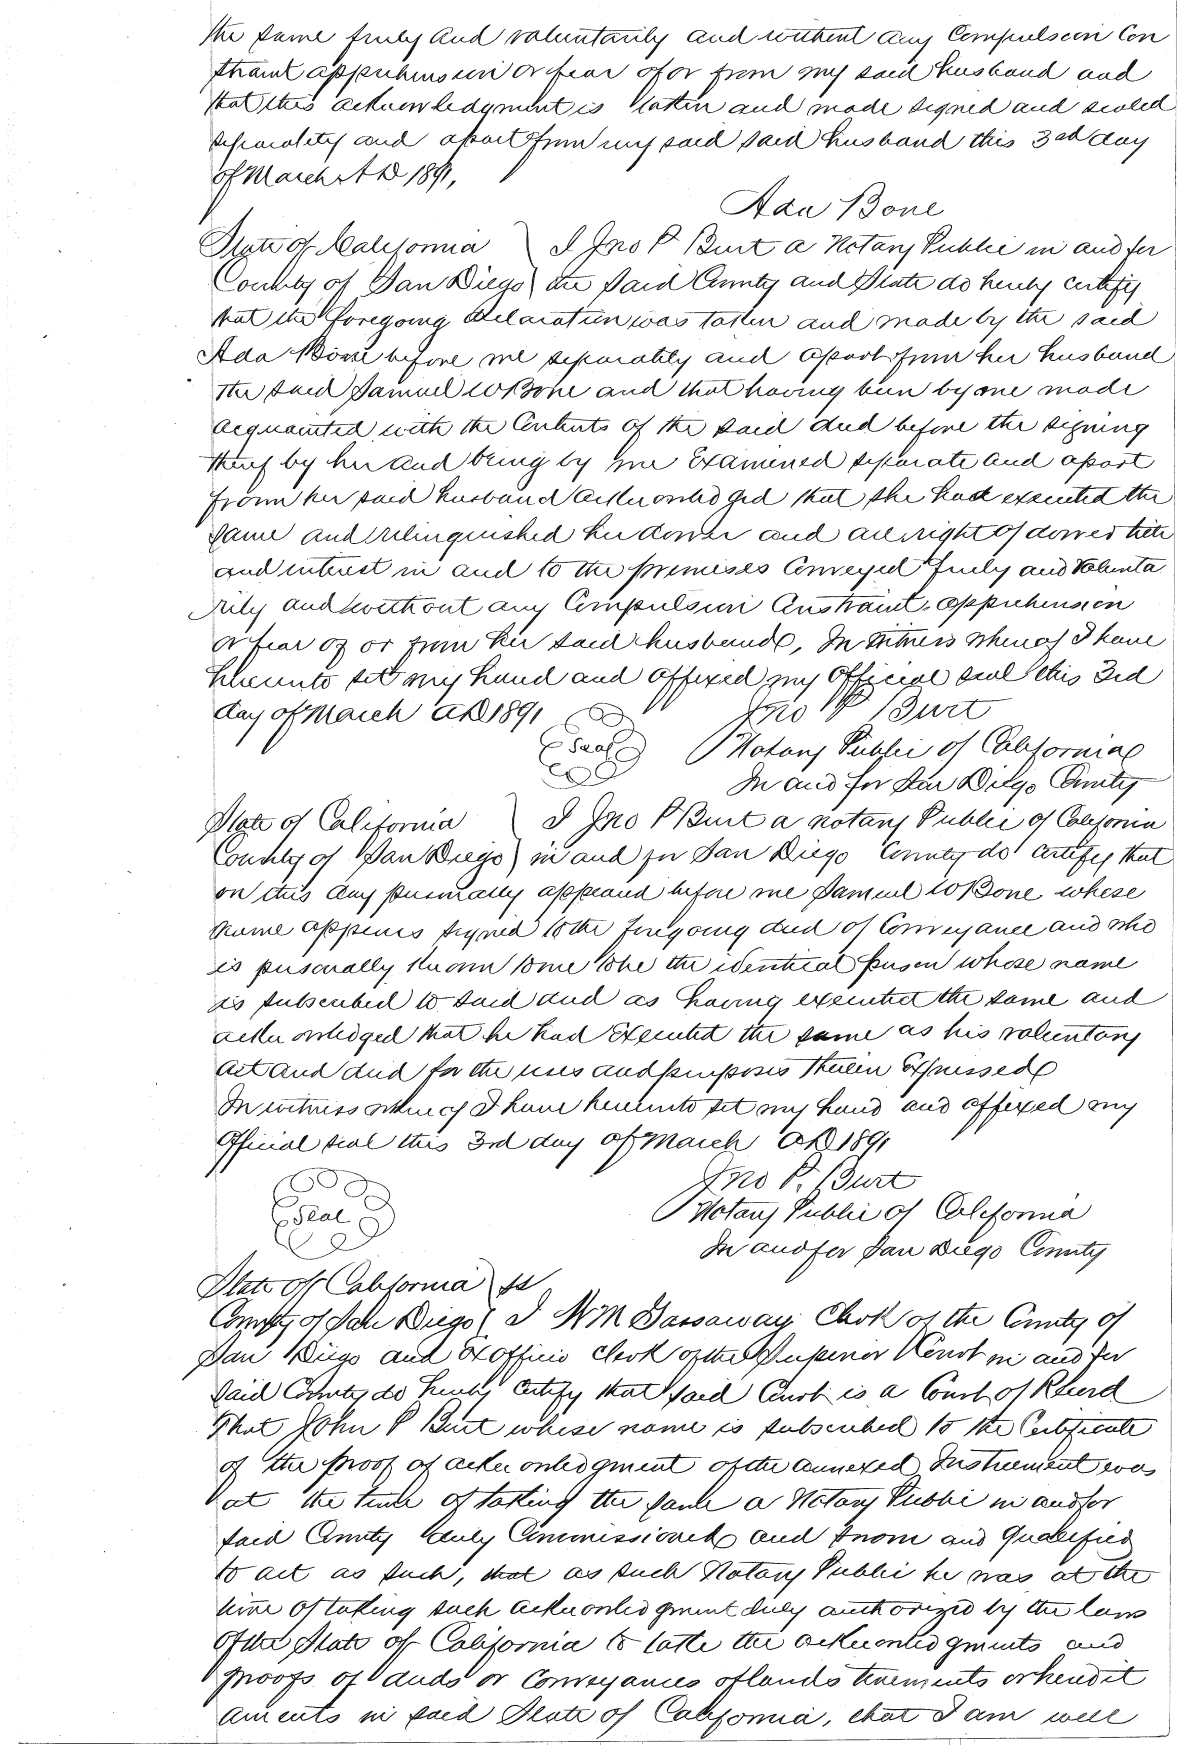 the same freely and voluntarily and without any Compulsion Con
straint apprehension or fear of or from my said husband and
that this acknowledgment is taken and made signed and sealed
separately and apart from my said said husband this 3rd day
of March A D 1891,
Ada Bone
State of California ) I Jno P Burt a Notary Public in and for
County of San Diego ) the said County and State do hereby certify
that the foregoing declaration was taken and made by the said
Ada Bone before me separately and apart from her husband
the said Samuel W Bone and that having been by me made
acquainted with the Contents of the said deed before the signing
thereof by her and being by me Examined separate and apart
from her said husband acknowledged that she had executed the
same and relinquished her dower and all right of dower title
and interest in and to the premises Conveyed freely and volunta
rily and without any Compulsion Constraint, apprehension
or fear of or from her said husband, In witness whereof I have
hereunto set my hand and affixed my official seal this 3rd
day of March A D 1891 Jno P Burt
Seal Notary Public of California
In and for San Diego County
State of California ) I Jno P Burt a notary Public of California
County of San Diego ) in and for San Diego County do certify that
on this day personally appeared before me Samuel W Bone whose
name appears signed to the foregoing deed of Conveyance and who
is personally known to me to be the identical person whose name
is subscribed to said deed as having executed the same and
acknowledged that he had Executed the same as his voluntary
act and deed for the uses and purposes therein Expressed
In witness whereof I have hereunto set my hand and affixed my
Official seal this 3rd day of March A D 1891
Jno P. Burt
Seal Notary Public of California
In and for San Diego County
State of California ) ss
County of San Diego ( I W M Gassaway Clerk of the County of
San Diego and Exofficio clerk of the Superior Court in and for
said County do hereby certify that said Court is a Court of Record
That John P Burt whose name is subscribed to the Certificate
of the proof of acknowledgment of the annexed Instrument was
at the time of taking the same a Notary Public in and for
said County duly Commissioned and sworn and Qualified
to act as such, that as such Notary Public he was at the
time of taking such acknowledgment duly authorized by the laws
of the State of California to take the acknowledgments and
proofs of deeds or Conveyances of lands tenements or heredit
aments in said State of California, that I am well